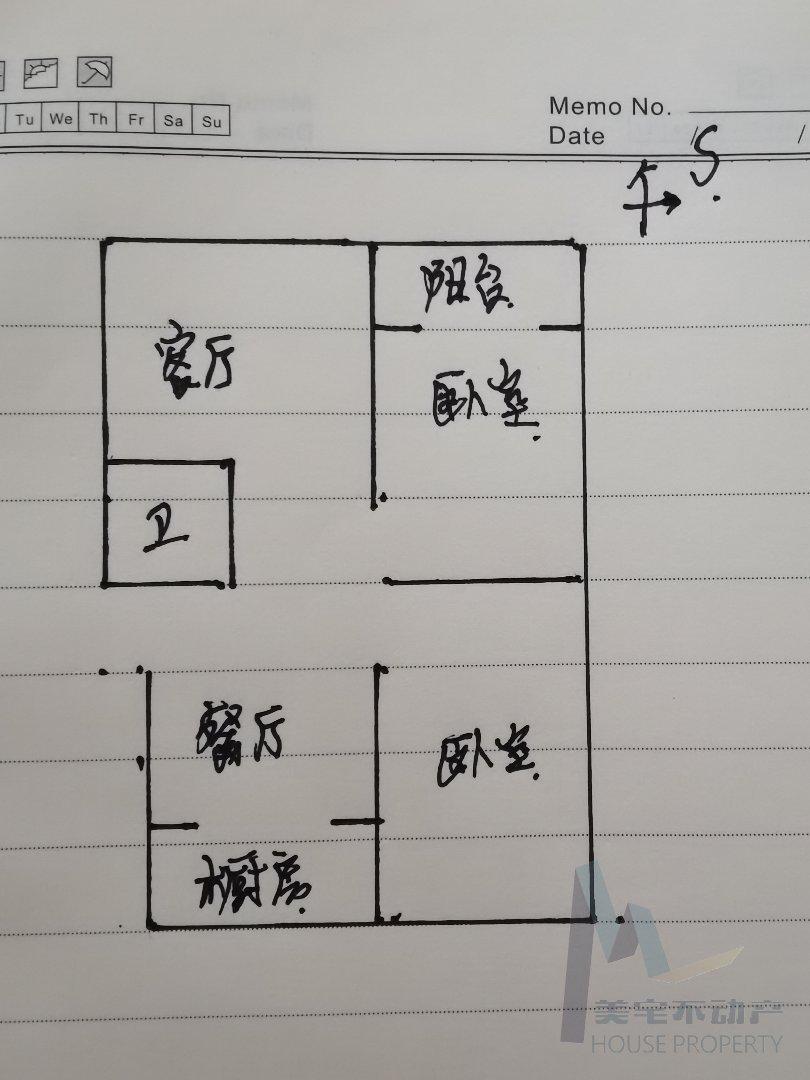 Tu We Th Fr Sa Su
Memo No.
Date / /
S
阳台
客厅
卧室
卫
餐厅
卧室
厨房
美宅不动产
HOUSE PROPERTY